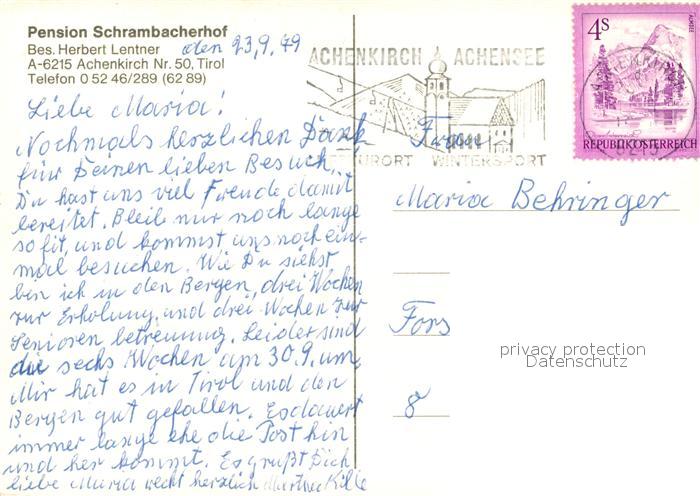 Pension Schrambacherhof
Bes. Herbert Lentner den 23,9.79
A-6215 Achenkirch Nr. 50, Tirol
Telefon 0 52 46/289 (62 89)
Liebe Maria!
Nochmals herzlichen Dank
für Deinen lieben Besuch.
Du hast uns viel Freude damit
bereitet. Bleib nur noch lange
so fit, und kommst uns noch ein-
mal besuchen. Wie Du siehst
bin ich in den Bergen, drei Wochen
zur Erholung und drei Wochen zur
Senioren betreuung. Leider sind
die sechs Wochen am 30.9. um,
Mir hat es in Tirol und den
Bergen gut gefallen. Es dauert
immer lange ehe die Post hin
und her kommt. Es grüßt Dich
liebe Maria recht herzlich
ACHENKIRCH ACHENSEE
KURORT WINTERSPORT
4s
ALMSEE
REPUBLIK ÖSTERREICH
6215
Frau
Maria Behringer
Fors
8
privacy protection
Datenschutz